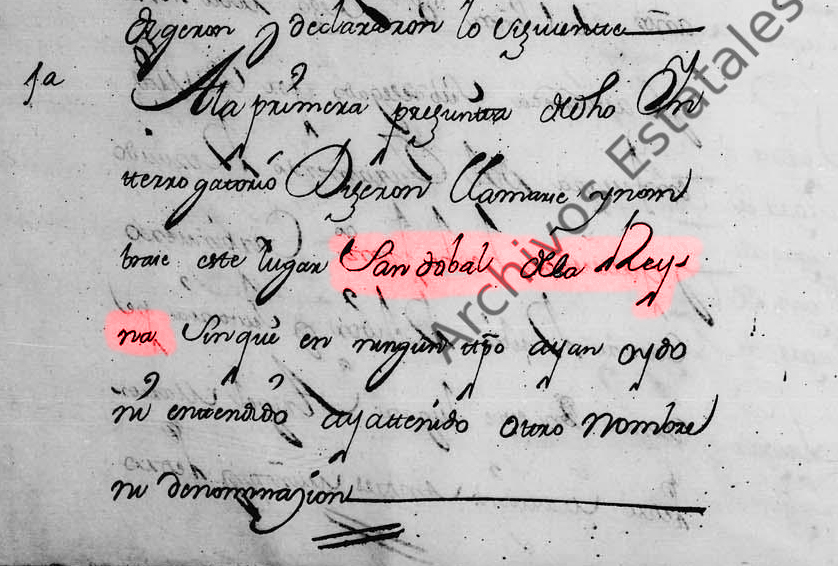 digeron y declararon lo siguiente
1a
A la primera pregunta de dho In
terrogatorio Digeron llamarse y nom
brase este lugar San dobal de la Rey
na sin que en ningun tpō ayan oydo
ni entendido ay attenido ottro nombre
ni denominazion
Archivos Estatales